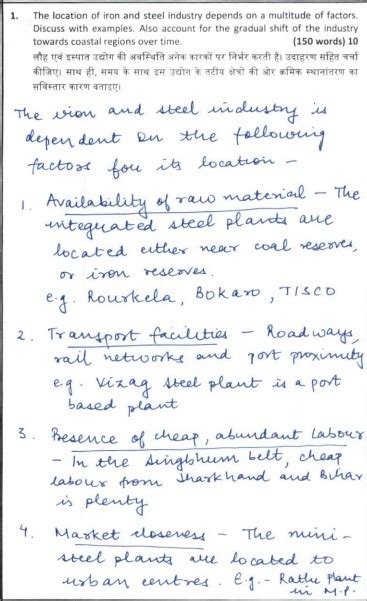 1. The location of iron and steel industry depends on a multitude of factors.
Discuss with examples. Also account for the gradual shift of the industry
towards coastal regions over time. (150 words) 10
लौह एवं इस्पात उद्योग की अवस्थिति अनेक कारकों पर निर्भर करती है। उदाहरण सहित चर्चा
कीजिए। साथ ही, समय के साथ इस उद्योग के तटीय क्षेत्रों की ओर क्रमिक स्थानांतरण का
सविस्तार कारण बताइए।
The iron and steel industry is
dependent on the following
factors for its location –
1. Availability of raw material – The
integrated steel plants are
located either near coal reserves,
or iron reserves.
e.g. Rourkela, Bokaro, TISCO
2. Transport facilities – Roadways,
rail networks and port proximity
e.g. Vizag steel plant is a port
based plant
3. Presence of cheap, abundant labour
– In the Singbhum belt, cheap
labour from Jharkhand and Bihar
is plenty
4. Market closeness – The mini-
steel plants are located to
urban centres. E.g.- Plant
in M.P.